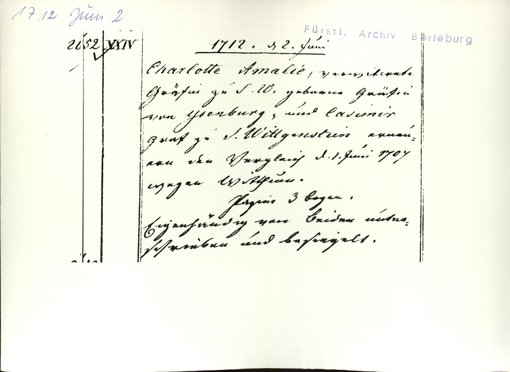 1712 Juni 2
Fürstl. Archiv Berleburg
2152 XXIV 1712. d. 2. Juni
Charlotte Amalie, verwitwete
Gräfin zu S. W. geborne Gräfin
von Ysenburg, und Casimir
Graf zu S. Wittgenstein erneu-
ern den Vergleich d. 1. Juni 1707
wegen
Papier 3 bogen.
Eigenhändig von beiden unter-
schrieben und besiegelt.